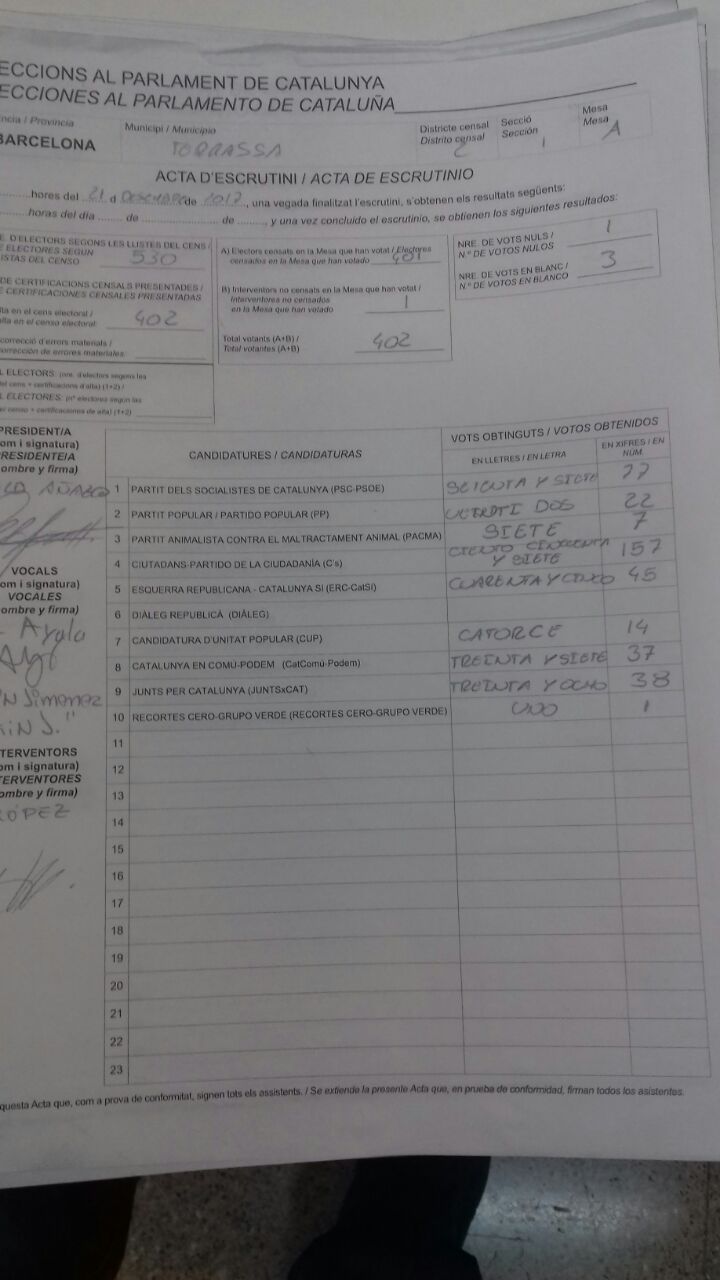 ECCIONS AL PARLAMENT DE CATALUNYA
ECCIONES AL PARLAMENTO DE CATALUÑA
ncia / Provincia
BARCELONA
Municipi / Municipio
TORRASSA
Districte censal
Distrito censal
2
Secció
Sección
1
Mesa
Mesa
A
ACTA D'ESCRUTINI / ACTA DE ESCRUTINIO
hores del 21 d de 2017, una vegada finalitzat l'escrutini, s'obtenen els resultats següents:
horas del día de de , y una vez concluido el escrutinio, se obtienen los siguientes resultados:
E D'ELECTORS SEGONS LES LLISTES DEL CENS /
E ELECTORES SEGUN
ISTAS DEL CENSO
530
DE CERTIFICACIONS CENSALS PRESENTADES /
E CERTIFICACIONES CENSALES PRESENTADAS
lta en el cens electoral /
alta en el censo electoral
402
correcció d'errors materials /
corrección de errores materiales
L ELECTORS: (nre. d'electors segons les
del cens + certificacions d'alta) (1+2) /
L ELECTORES: (nº electores según las
censo + certificaciones de alta) (1+2)
A) Electors censats en la Mesa que han votat / Electores
censados en la Mesa que han votado
401
B) Interventors no censats en la Mesa que han votat /
Interventores no censados
en la Mesa que han votado
1
Total votants (A+B) /
Total votantes (A+B)
402
NRE. DE VOTS NULS /
N.º DE VOTOS NULOS
1
NRE. DE VOTS EN BLANC /
N.º DE VOTOS EN BLANCO
3
PRESIDENT/A
om i signatura)
PRESIDENTE/A
ombre y firma)
VOCALS
om i signatura)
VOCALES
ombre y firma)
Ayala
Jimenez
TERVENTORS
om i signatura)
TERVENTORES
ombre y firma)
LÓPEZ
CANDIDATURES / CANDIDATURAS
VOTS OBTINGUTS / VOTOS OBTENIDOS
EN LLETRES / EN LETRA
EN XIFRES / EN NÚM.
1 PARTIT DELS SOCIALISTES DE CATALUNYA (PSC-PSOE) Y SIETE 77
2 PARTIT POPULAR / PARTIDO POPULAR (PP) DOS 22
3 PARTIT ANIMALISTA CONTRA EL MALTRACTAMENT ANIMAL (PACMA) SIETE 7
4 CIUTADANS-PARTIDO DE LA CIUDADANÍA (C's) CIENTO CINCUENTA Y SIETE 157
5 ESQUERRA REPUBLICANA - CATALUNYA SÍ (ERC-CatSí) CUARENTA Y CINCO 45
6 DIÀLEG REPUBLICÀ (DIÀLEG)
7 CANDIDATURA D'UNITAT POPULAR (CUP) CATORCE 14
8 CATALUNYA EN COMÚ-PODEM (CatComú-Podem) TREINTA Y SIETE 37
9 JUNTS PER CATALUNYA (JUNTSxCAT) TREINTA Y OCHO 38
10 RECORTES CERO-GRUPO VERDE (RECORTES CERO-GRUPO VERDE) UNO 1
11
12
13
14
15
16
17
18
19
20
21
22
23
questa Acta que, com a prova de conformitat, signen tots els assistents. / Se extiende la presente Acta que, en prueba de conformidad, firman todos los asistentes.